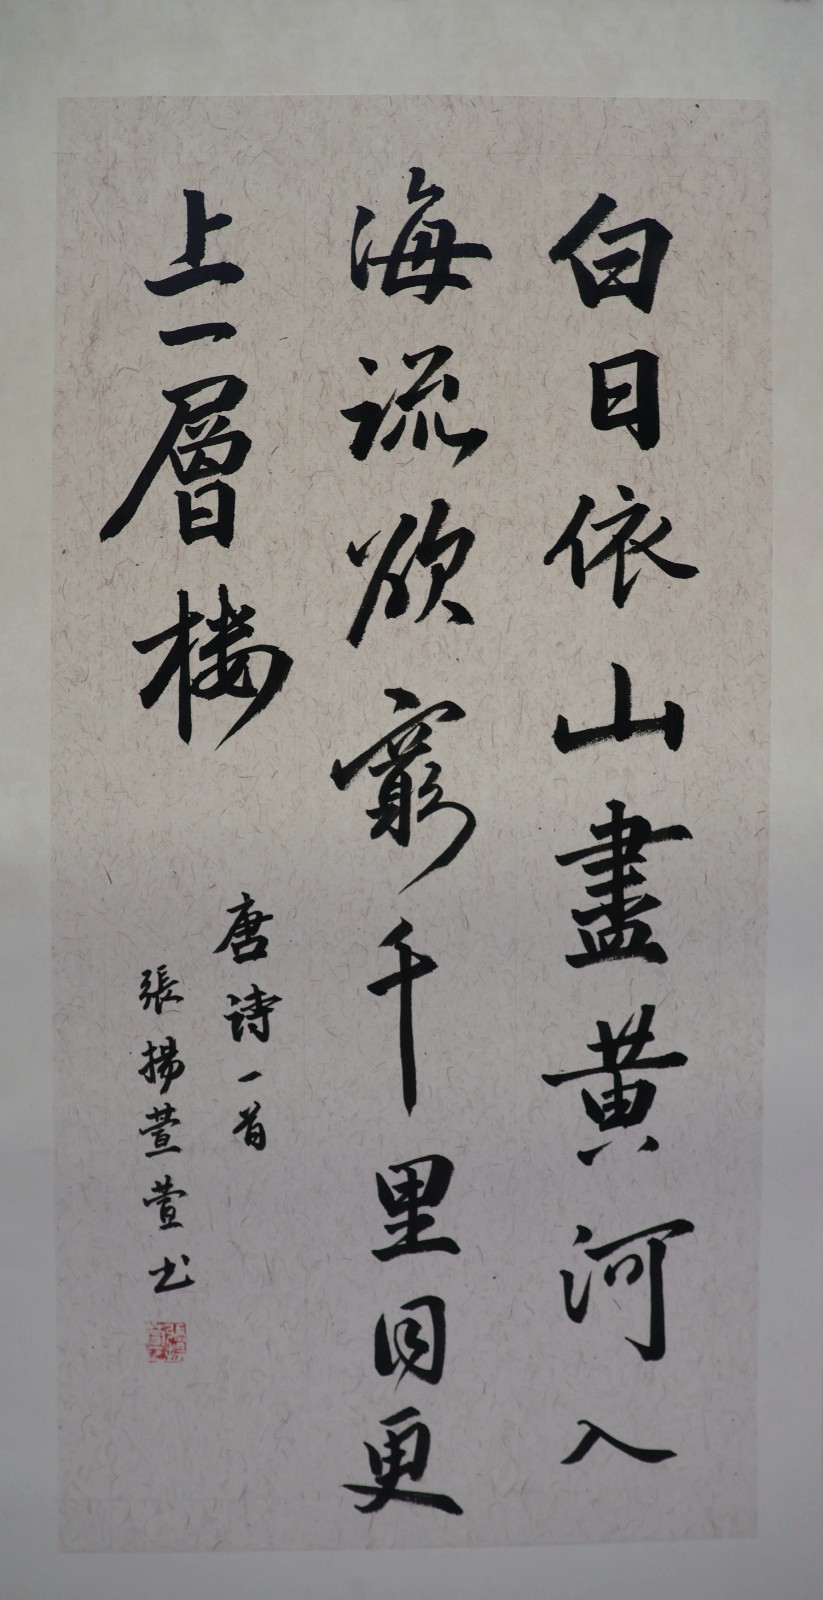 白日依山盡黄河入
海流欲窮千里目更
上一層楼
唐诗一首
張揚萱萱书